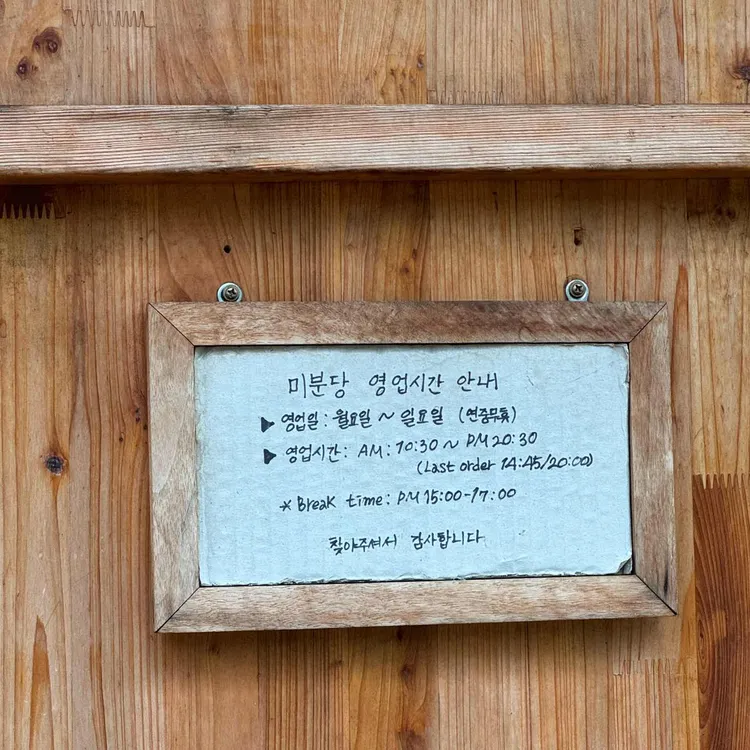 미분당 영업시간 안내
▶ 영업일 : 월요일 ~ 일요일 (연중무휴)
▶ 영업시간 : AM : 10:30 ~ PM 20:30
(Last order 14:45/20:00)
* Break time : PM 15:00-17:00
찾아주셔서 감사합니다